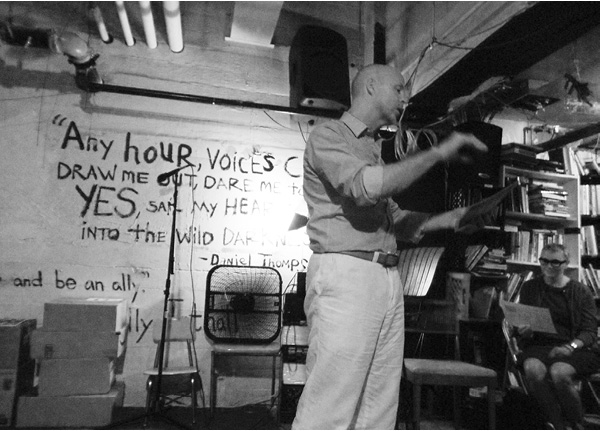 "Any hour, VOICES C
DRAW ME OUT, DARE ME to
YES, SAY MY HEAD
INTO the WILD DARKNESS
- DANIEL THOMPS
and be an ally."
ally